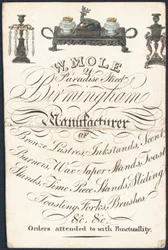 W. MOLE
Paradise Street
Birmingham
Manufacturer
OF
Bronze Lustres, Inkstands, Scent
Burners, Wax Taper Stands, Toast
Stands, Time Piece Stands, Sliding
Toasting Forks, Brushes
&c. &c.
Orders attended to with Punctuallity.